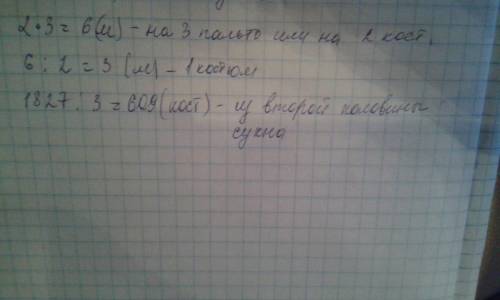 2·3 = 6(м) - на 3 пальто или на 2 кост.
6 : 2 = 3 (м) - 1 костюм
1827 : 3 = 609 (кост) - из второй половины
сукна